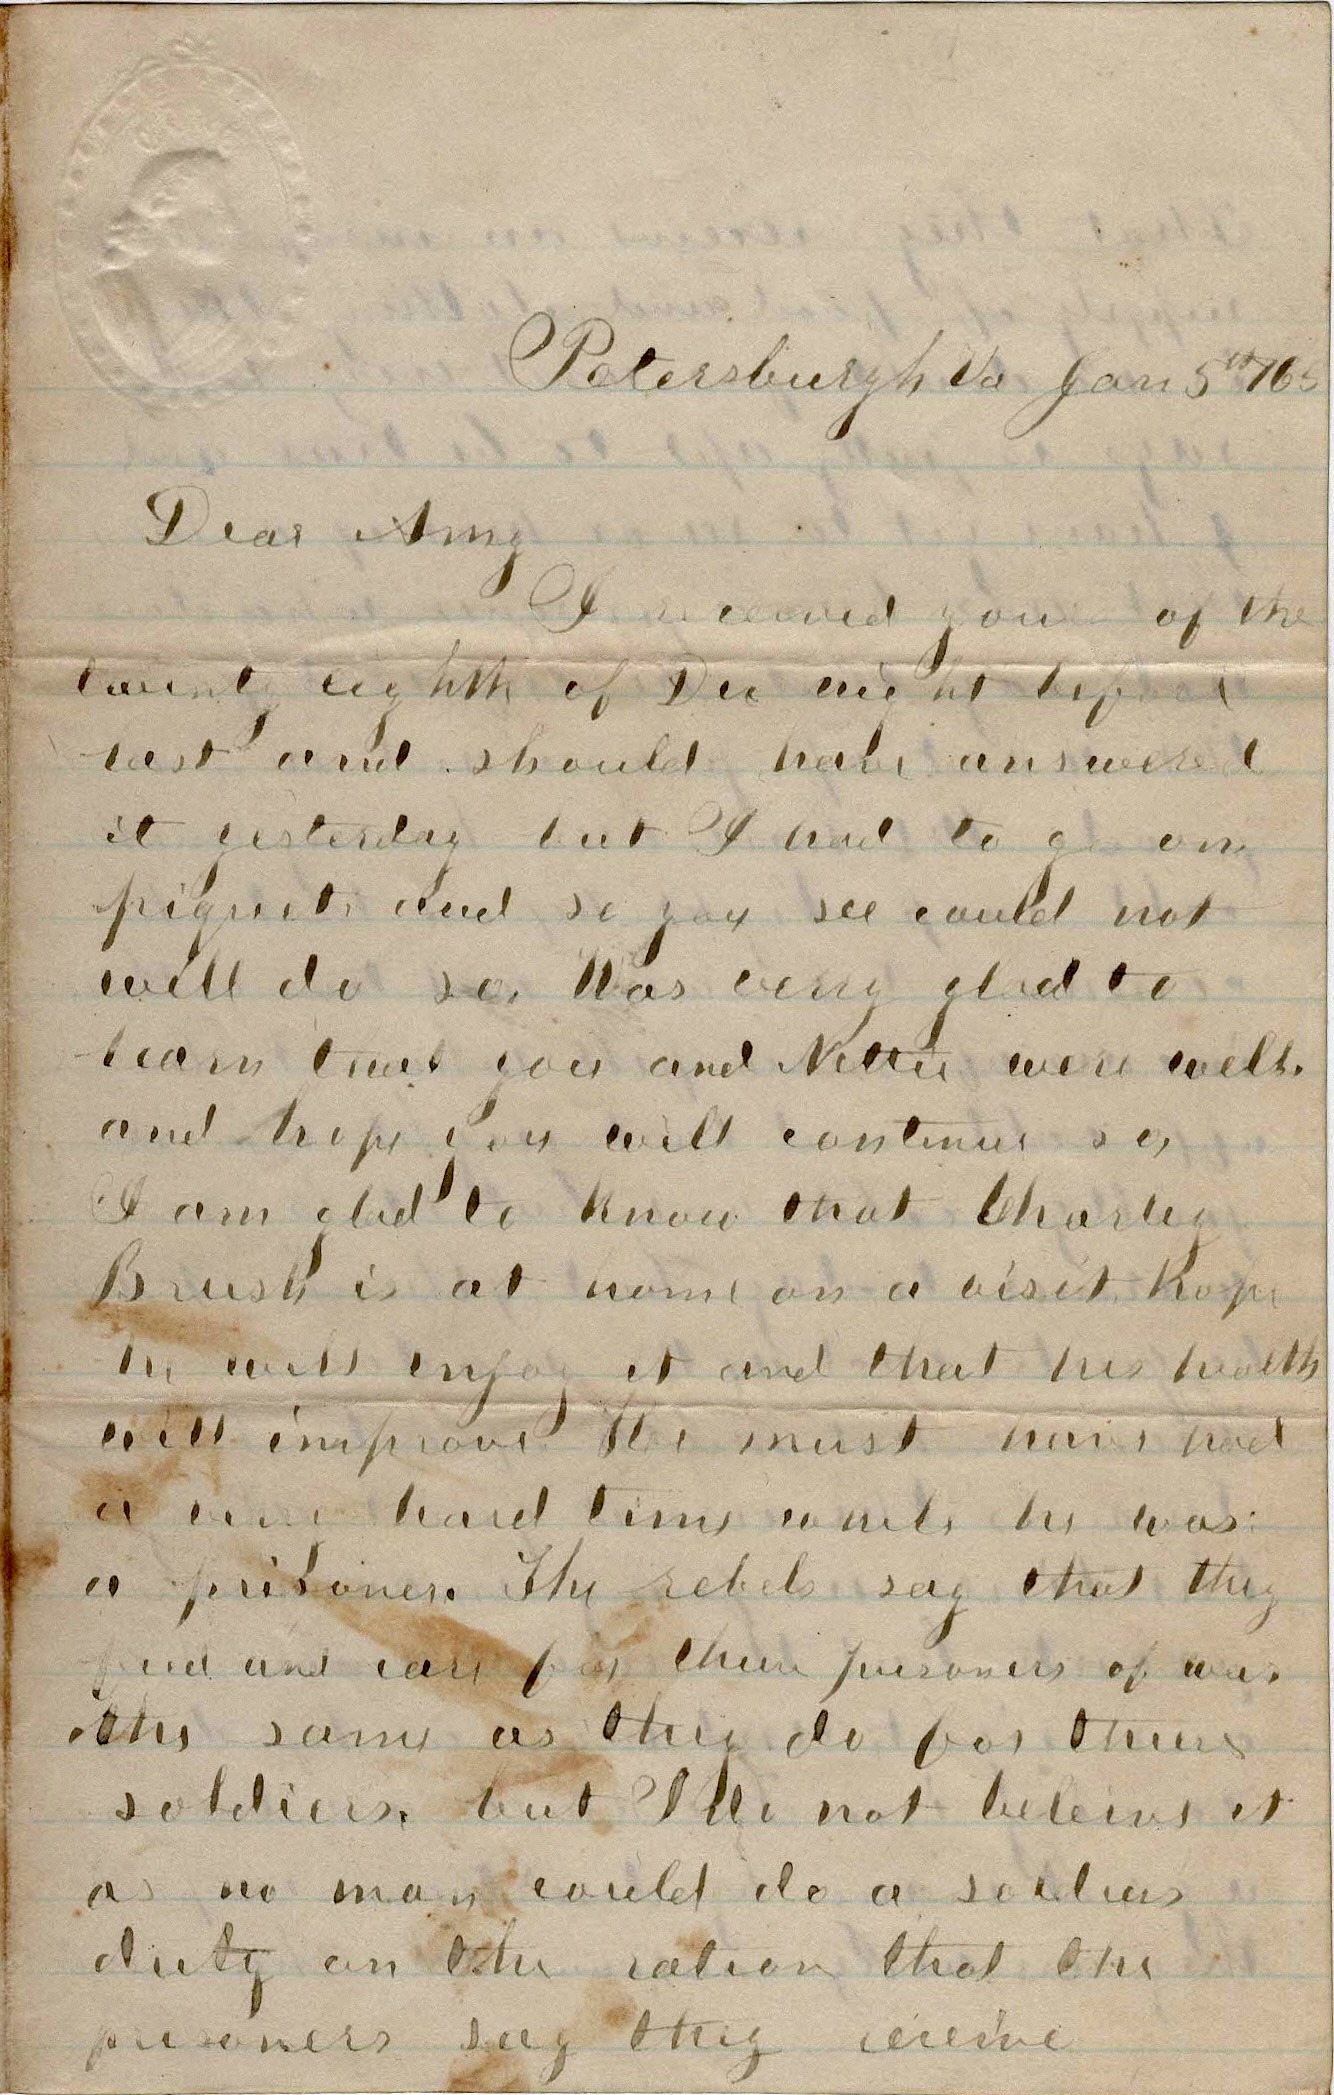 Petersburgh Va Jan 5th /65
Dear Amy
I received your of the
twenty eighth of Dec night before
last and should have answered
it yesterday but I had to go on
piquet and so you see could not
well do so. Was very glad to
learn that you and Nettie were well.
and hope you will continue so,
I am glad to know that Charley
Brush is at home on a visit. hope
he will enjoy it and that his health
will improve He must have had
a very hard time while he was
a prisoner. The rebels say that they
feed and care for their prisoners of war
the same as they do for their
soldiers. but I do not beleive it
as no man could do a soldiers
duty on the ration that the
prisoners say they receive